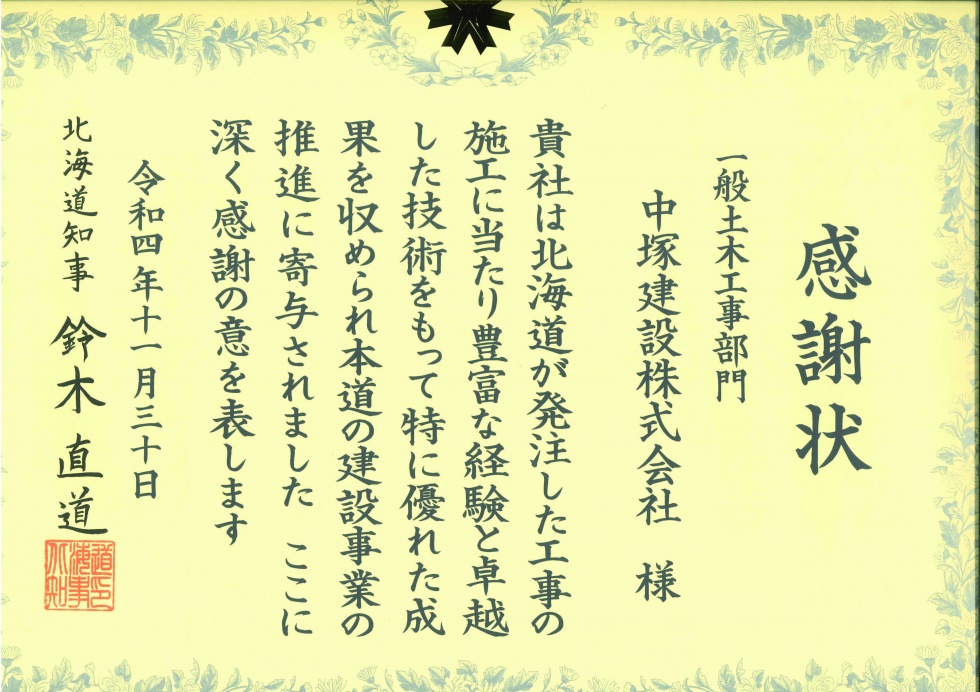 感謝状
一般土木工事部門
中塚建設株式会社 様
貴社は北海道が発注した工事の
施工に当たり豊富な経験と卓越
した技術をもって特に優れた成
果を収められ本道の建設事業の
推進に寄与されました ここに
深く感謝の意を表します
令和四年十一月三十日
北海道知事 鈴木直道